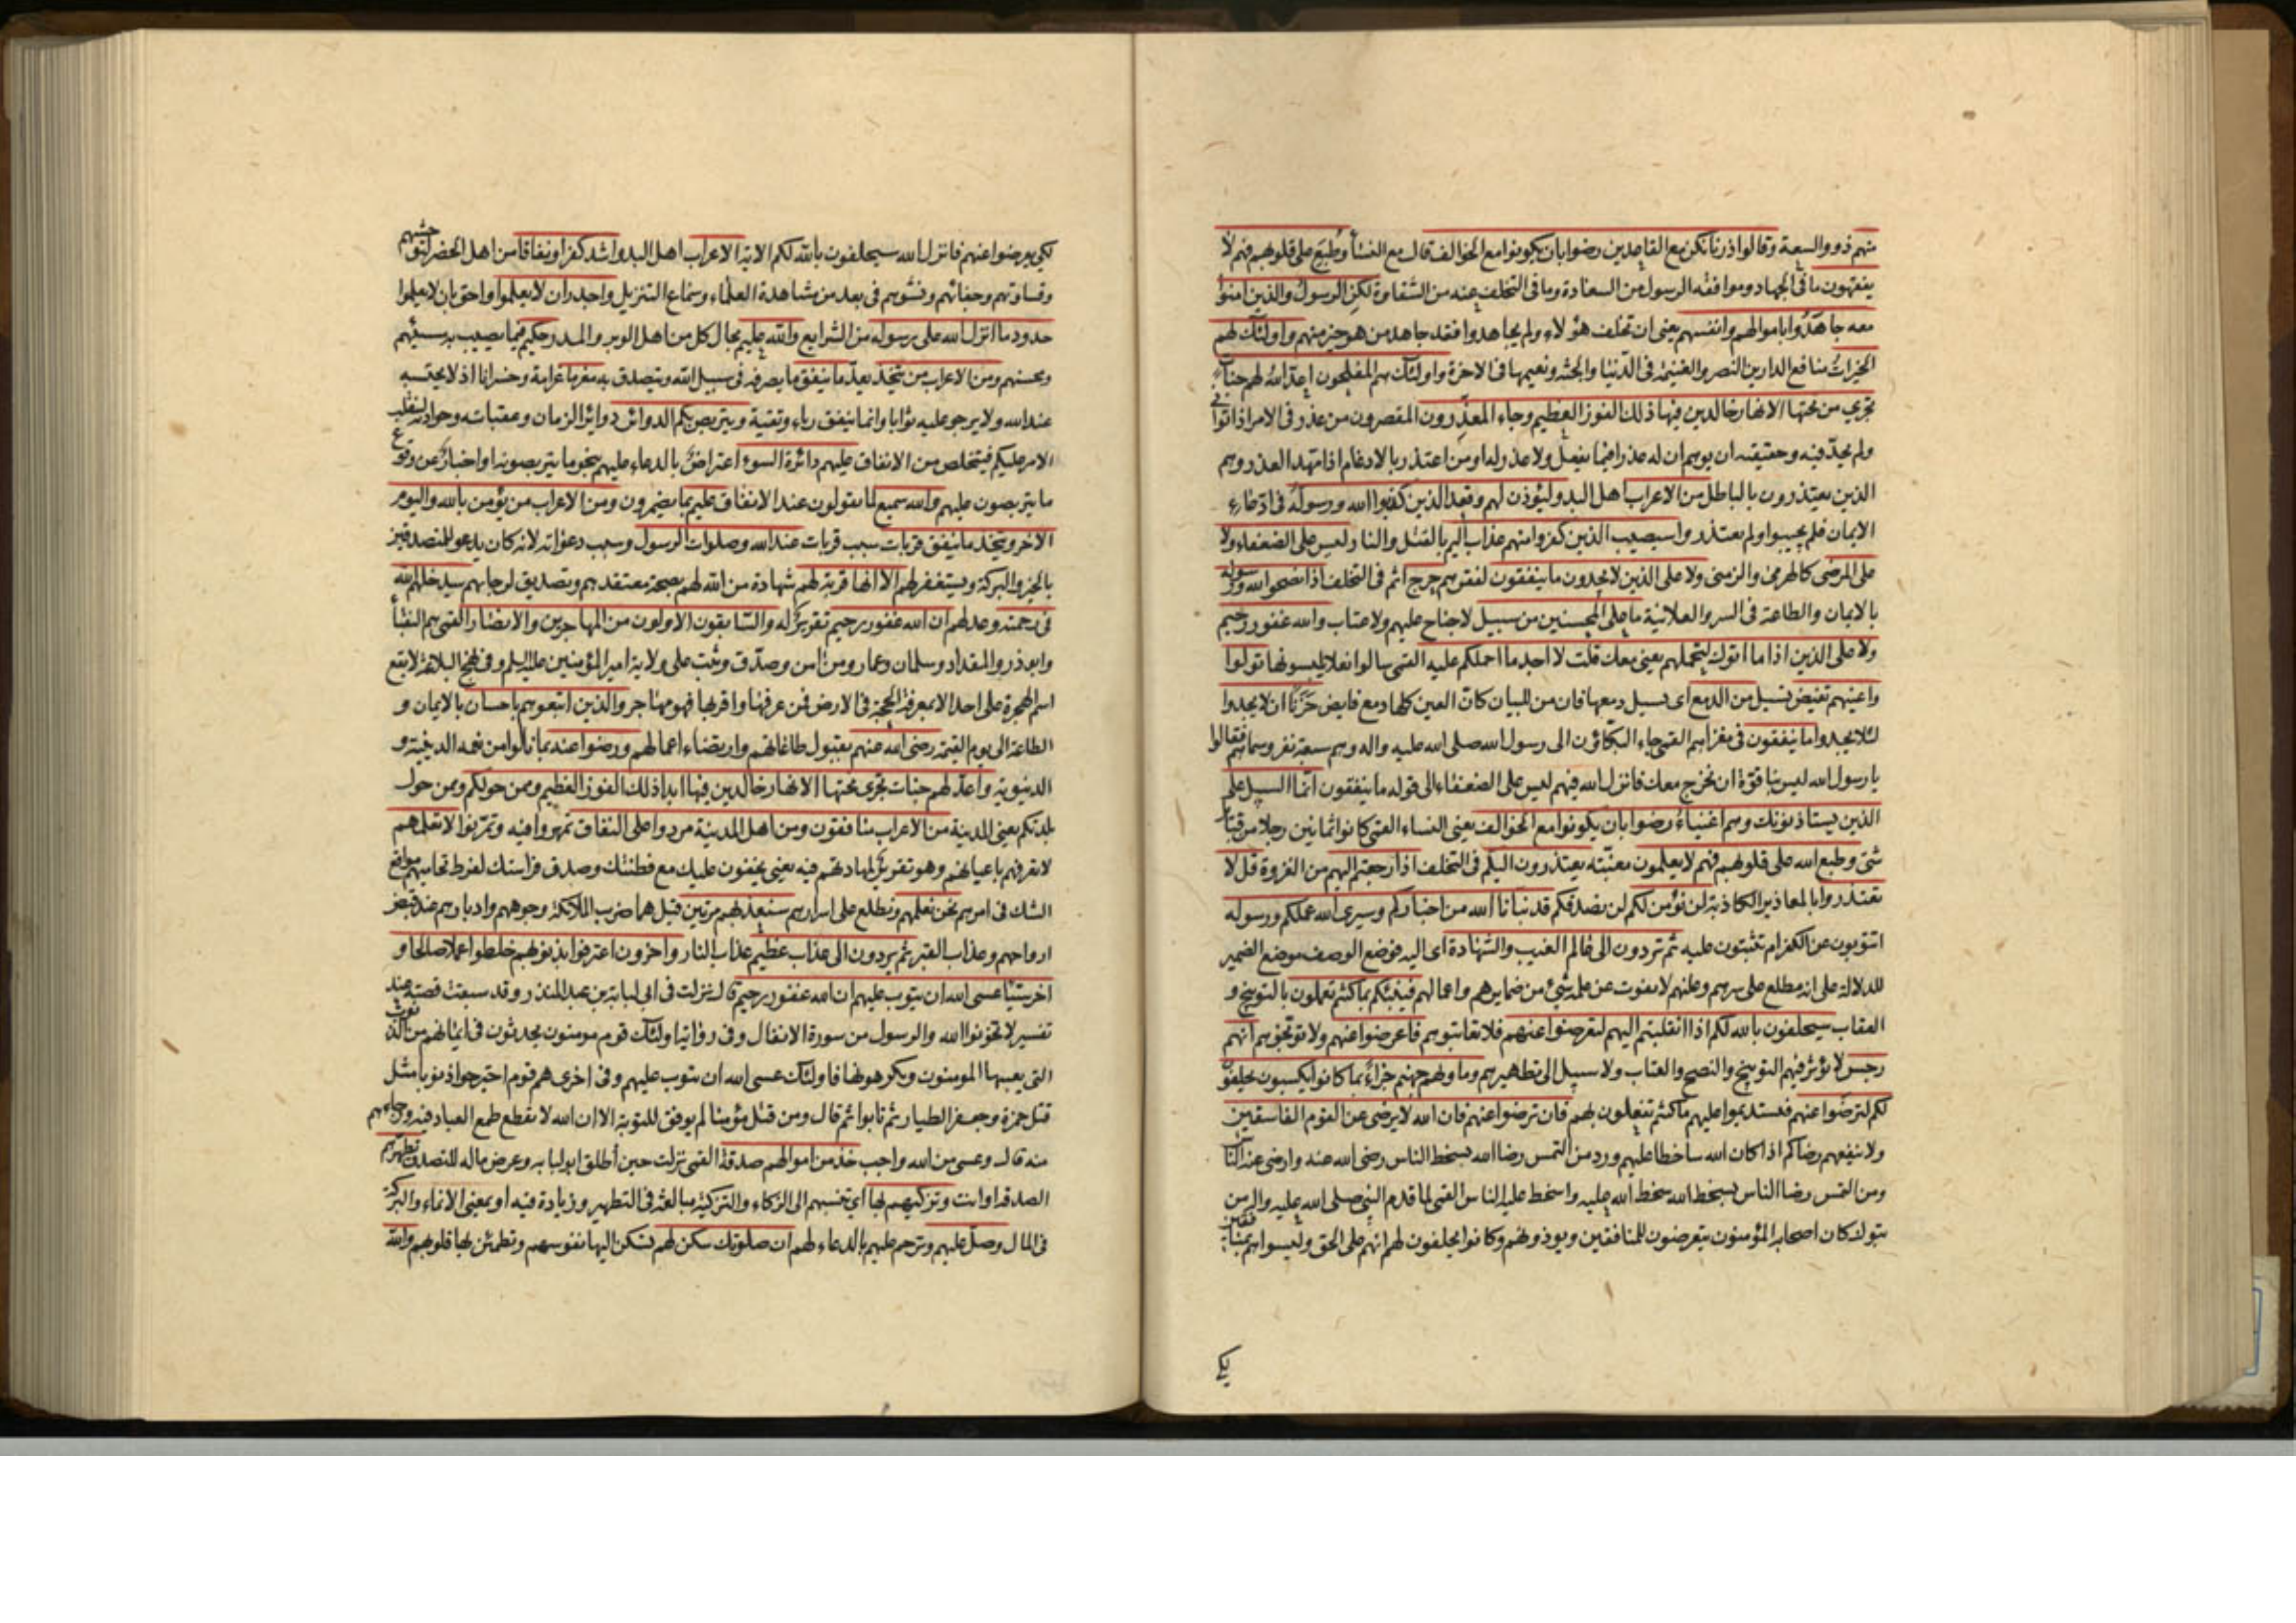 منهم ذووالسعة وقالوا ذرنا نكن مع القاعدين رضوا بان يكونوا مع الخوالف قال مع النسأ وطبع على قلوبهم فهم لا
يفقهون ما فى الجهاد وموافقة الرسول من السعادة وما فى التخلف عنه من الشقاوة لكن الرسول والذين امنوا
معه جاهدوا باموالهم وانفسهم يعنى ان تخلف هؤلاء ولم يجاهدوا فقد جاهد من هو خير منهم واولئك لهم
الخيرات منافع الدارين النصر والغنيمة فى الدنيا والجنة ونعيمها فى الاخرة واولئك هم المفلحون اعد الله لهم جنات
تجرى من تحتها الانهار خالدين فيها ذلك الفوز العظيم وجاء المعذرون المقصرون من عذر فى الامر اذا توانى
ولم يجدّ فيه وحقيقته ان يوهم ان له عذرا فيما يفعل ولا عذر له او من اعتذر بالادغام اذا مهد العذر وهم
الذين يعتذرون بالباطل من الاعراب اهل البدو ليؤذن لهم وقعد الذين كذبوا الله ورسوله فى ادعاء
الايمان فلم يجيبوا ولم يعتذروا سيصيب الذين كفروا منهم عذاب اليم بالقتل والنار ليس على الضعفاء ولا
على المرضى كالهرمى والزمنى ولا على الذين لا يجدون ما ينفقون لفقرهم حرج اثم فى التخلف اذا نصحوا لله ورسوله
بالايمان والطاعة فى السر والعلانية ما على المحسنين من سبيل لا جناح عليهم ولا عتاب والله غفور رحيم
ولا على الذين اذا ما اتوك لتحملهم يعنى معك قلت لا اجد ما احملكم عليه القمى سالوا نعلا يلبسونها تولوا
واعينهم تفيض تسيل من الدمع اى تسيل دمعها فان من للبيان كانّ العين كلها دمع فايض حزنا ان لا يجدوا
لئلا يجدوا ما ينفقون فى مغزاهم القمى جاء البكاؤن الى رسول الله صلى الله عليه واله وهم سبعة نفر وسماهم فقالوا
يا رسول الله ليس بنا قوة ان نخرج معك فانزل الله فيهم ليس على الضعفاء الى قوله ما ينفقون انما السبيل على
الذين يستاذنونك وهم اغنياء رضوا بان يكونوا مع الخوالف يعنى النساء القمى كانوا ثمانين رجلا من قبائل
شتى وطبع الله على قلوبهم فهم لا يعلمون مغبّته يعتذرون اليكم فى التخلف اذا رجعتم اليهم من الغزوة قل لا
تعتذروا بالمعاذير الكاذبة لن نؤمن لكم لن نصدقكم قد نبانا الله من اخباركم وسيرى الله عملكم ورسوله
اتتوبون عن الكفر ام تثبتون عليه ثم تردون الى عالم الغيب والشهادة اى اليه فوضع الوصف موضع الضمير
للدلالة على انه مطلع على سرهم وعلنهم لا يفوت عن علمه شئ من ضمايرهم واعمالهم فينبئكم بما كنتم تعملون بالتوبيخ و
العقاب سيحلفون بالله لكم اذا انقلبتم اليهم لتعرضوا عنهم فلا تعاتبوهم فاعرضوا عنهم ولا توبخوهم انهم
رجس لا يؤثر فيهم التوبيخ والنصح والعتاب ولا سبيل الى تطهيرهم وماويهم جهنم جزاء بما كانوا يكسبون يحلفون
لكم لترضوا عنهم فتستديموا عليهم ما كنتم تفعلون بهم فان ترضوا عنهم فان الله لا يرضى عن القوم الفاسقين
ولا ينفعهم رضاكم اذا كان الله ساخطا عليهم ورد من التمس رضا الله بسخط الناس رضى الله عنه وارضى عنه الناس
ومن التمس رضا الناس بسخط الله سخط الله عليه واسخط عليه الناس القمى لما قدم النبى صلى الله عليه واله من
تبوك كان اصحابه المؤمنون يتعرضون للمنافقين ويوذونهم وكانوا يحلفون لهم انهم على الحق وليسوا هم بمنافقين
لكى يعرضوا عنهم فانزل الله سيحلفون بالله لكم الاية الاعراب اهل البدو اشد كفرا ونفاقا من اهل الحضر لتوحشهم
وقساوتهم وجفائهم ونشوهم فى بعد من مشاهدة العلماء وسماع التنزيل واجدر ان لا يعلموا واحق بان لا يعلموا
حدود ما انزل الله على رسوله من الشرايع والله عليم بحال كل من اهل الوبر والمدر حكيم فيما يصيب به مسيئهم
ومحسنهم ومن الاعراب من يتخذ يعدّ ما ينفق ما يصرفه فى سبيل الله ويتصدق به مغرما غرامة وخسرانا اذ لا يحتسبه
عند الله ولا يرجو عليه ثوابا وانما ينفق رياء وتقية ويتربص بكم الدوائر دوائر الزمان وعقباته وحوادثه لينقلب
الامر عليكم فيتخلص من الانفاق عليهم دائرة السوء اعتراض بالدعاء عليهم بنحو ما يتربصونه او اخبار عن وقوع
ما يتربصون عليهم والله سميع لما يقولون عند الانفاق عليم بما يضمرون ومن الاعراب من يؤمن بالله واليوم
الاخر ويتخذ ما ينفق قربات سبب قربات عند الله وصلوات الرسول وسبب دعواته لانه كان يدعو للمتصدقين
بالخير والبركة ويستغفر لهم الا انها قربة لهم شهادة من الله لهم بصحة معتقدهم وتصديق لرجائهم سيدخلهم الله
فى رحمته وعد لهم ان الله غفور رحيم تقرير له والسابقون الاولون من المهاجرين والانصار القمى هم النقبأ
وابوذر والمقداد وسلمان وعمار ومن امن وصدّق وثبت على ولاية امير المؤمنين عليه السلم وفى نهج البلاغة لا يقع
اسم الهجرة على احد الا بمعرفة الحجة فى الارض فمن عرفها واقر بها فهو مهاجر والذين اتبعوهم باحسان بالايمان و
الطاعة الى يوم القيمة رضى الله عنهم بقبول طاعاتهم وارتضاء اعمالهم ورضوا عنه بما نالوا من نعمه الدينية و
الدنيوية واعد لهم جنات تجرى تحتها الانهار خالدين فيها ابدا ذلك الفوز العظيم وممن حولكم وممن حول
بلدتكم يعنى المدينة من الاعراب منافقون ومن اهل المدينة مردوا على النفاق تمهروا فيه وتمرنوا لا تعلمهم
لا تعرفهم باعيانهم وهو تقرير لمهارتهم فيه يعنى يخفون عليك مع فطنتك وصدق فراستك لفرط تحاميهم مواقع
الشك فى امرهم نحن نعلمهم ونطلع على اسرارهم سنعذبهم مرتين قيل هما ضرب الملائكة وجوههم وادبارهم عند قبض
ارواحهم وعذاب القبر ثم يردون الى عذاب عظيم عذاب النار واخرون اعترفوا بذنوبهم خلطوا عملا صالحا و
اخر سيئا عسى الله ان يتوب عليهم ان الله غفور رحيم قال نزلت فى ابى لبابة بن عبد المنذر وقد سبقت قصته عند
تفسير لا تخونوا الله والرسول من سورة الانفال وفى رواية اولئك قوم مومنون يحدثون فى ايمانهم من الذنوب
التى يعيبها المومنون ويكرهونها فاولئك عسى الله ان يتوب عليهم وفى اخرى هم قوم اجترحوا ذنوبا مثل
قتل حمزة وجعفر الطيار ثم تابوا ثم قال ومن قتل مؤمنا لم يوفق للتوبة الا ان الله لا يقطع طمع العباد فيه ورجاءهم
منه قال وعسى من الله واجب خذ من اموالهم صدقة القمى نزلت حين أطلق ابولبابه وعرض ماله للتصدق تطهرهم
الصدقة او انت وتزكيهم بها اى تنسبهم الى الزكاء والتزكية مبالغة فى التطهير وزيادة فيه او بمعنى الانماء والبركة
فى المال وصلّ عليهم وترحم عليهم بالدعاء لهم ان صلوتك سكن لهم تسكن اليها نفوسهم وتطمئن بها قلوبهم والله